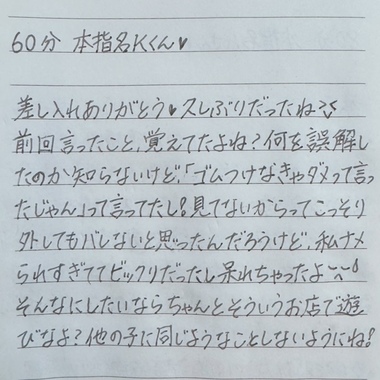 60分 本指名Kくん♥
差し入れありがとう♥久しぶりだったね?
前回言ったこと、覚えてたよね?何を誤解し
たのか知らないけど、「ゴムつけなきゃダメって言っ
たじゃん」って言ってたし!見てないからってこっそり
外してもバレないと思ったんだろうけど、私ナメ
られすぎててビックリだったし呆れちゃったよ〜
そんなにしたいならちゃんとそういうお店で遊
びなよ?他の子に同じようなことしないようにね!